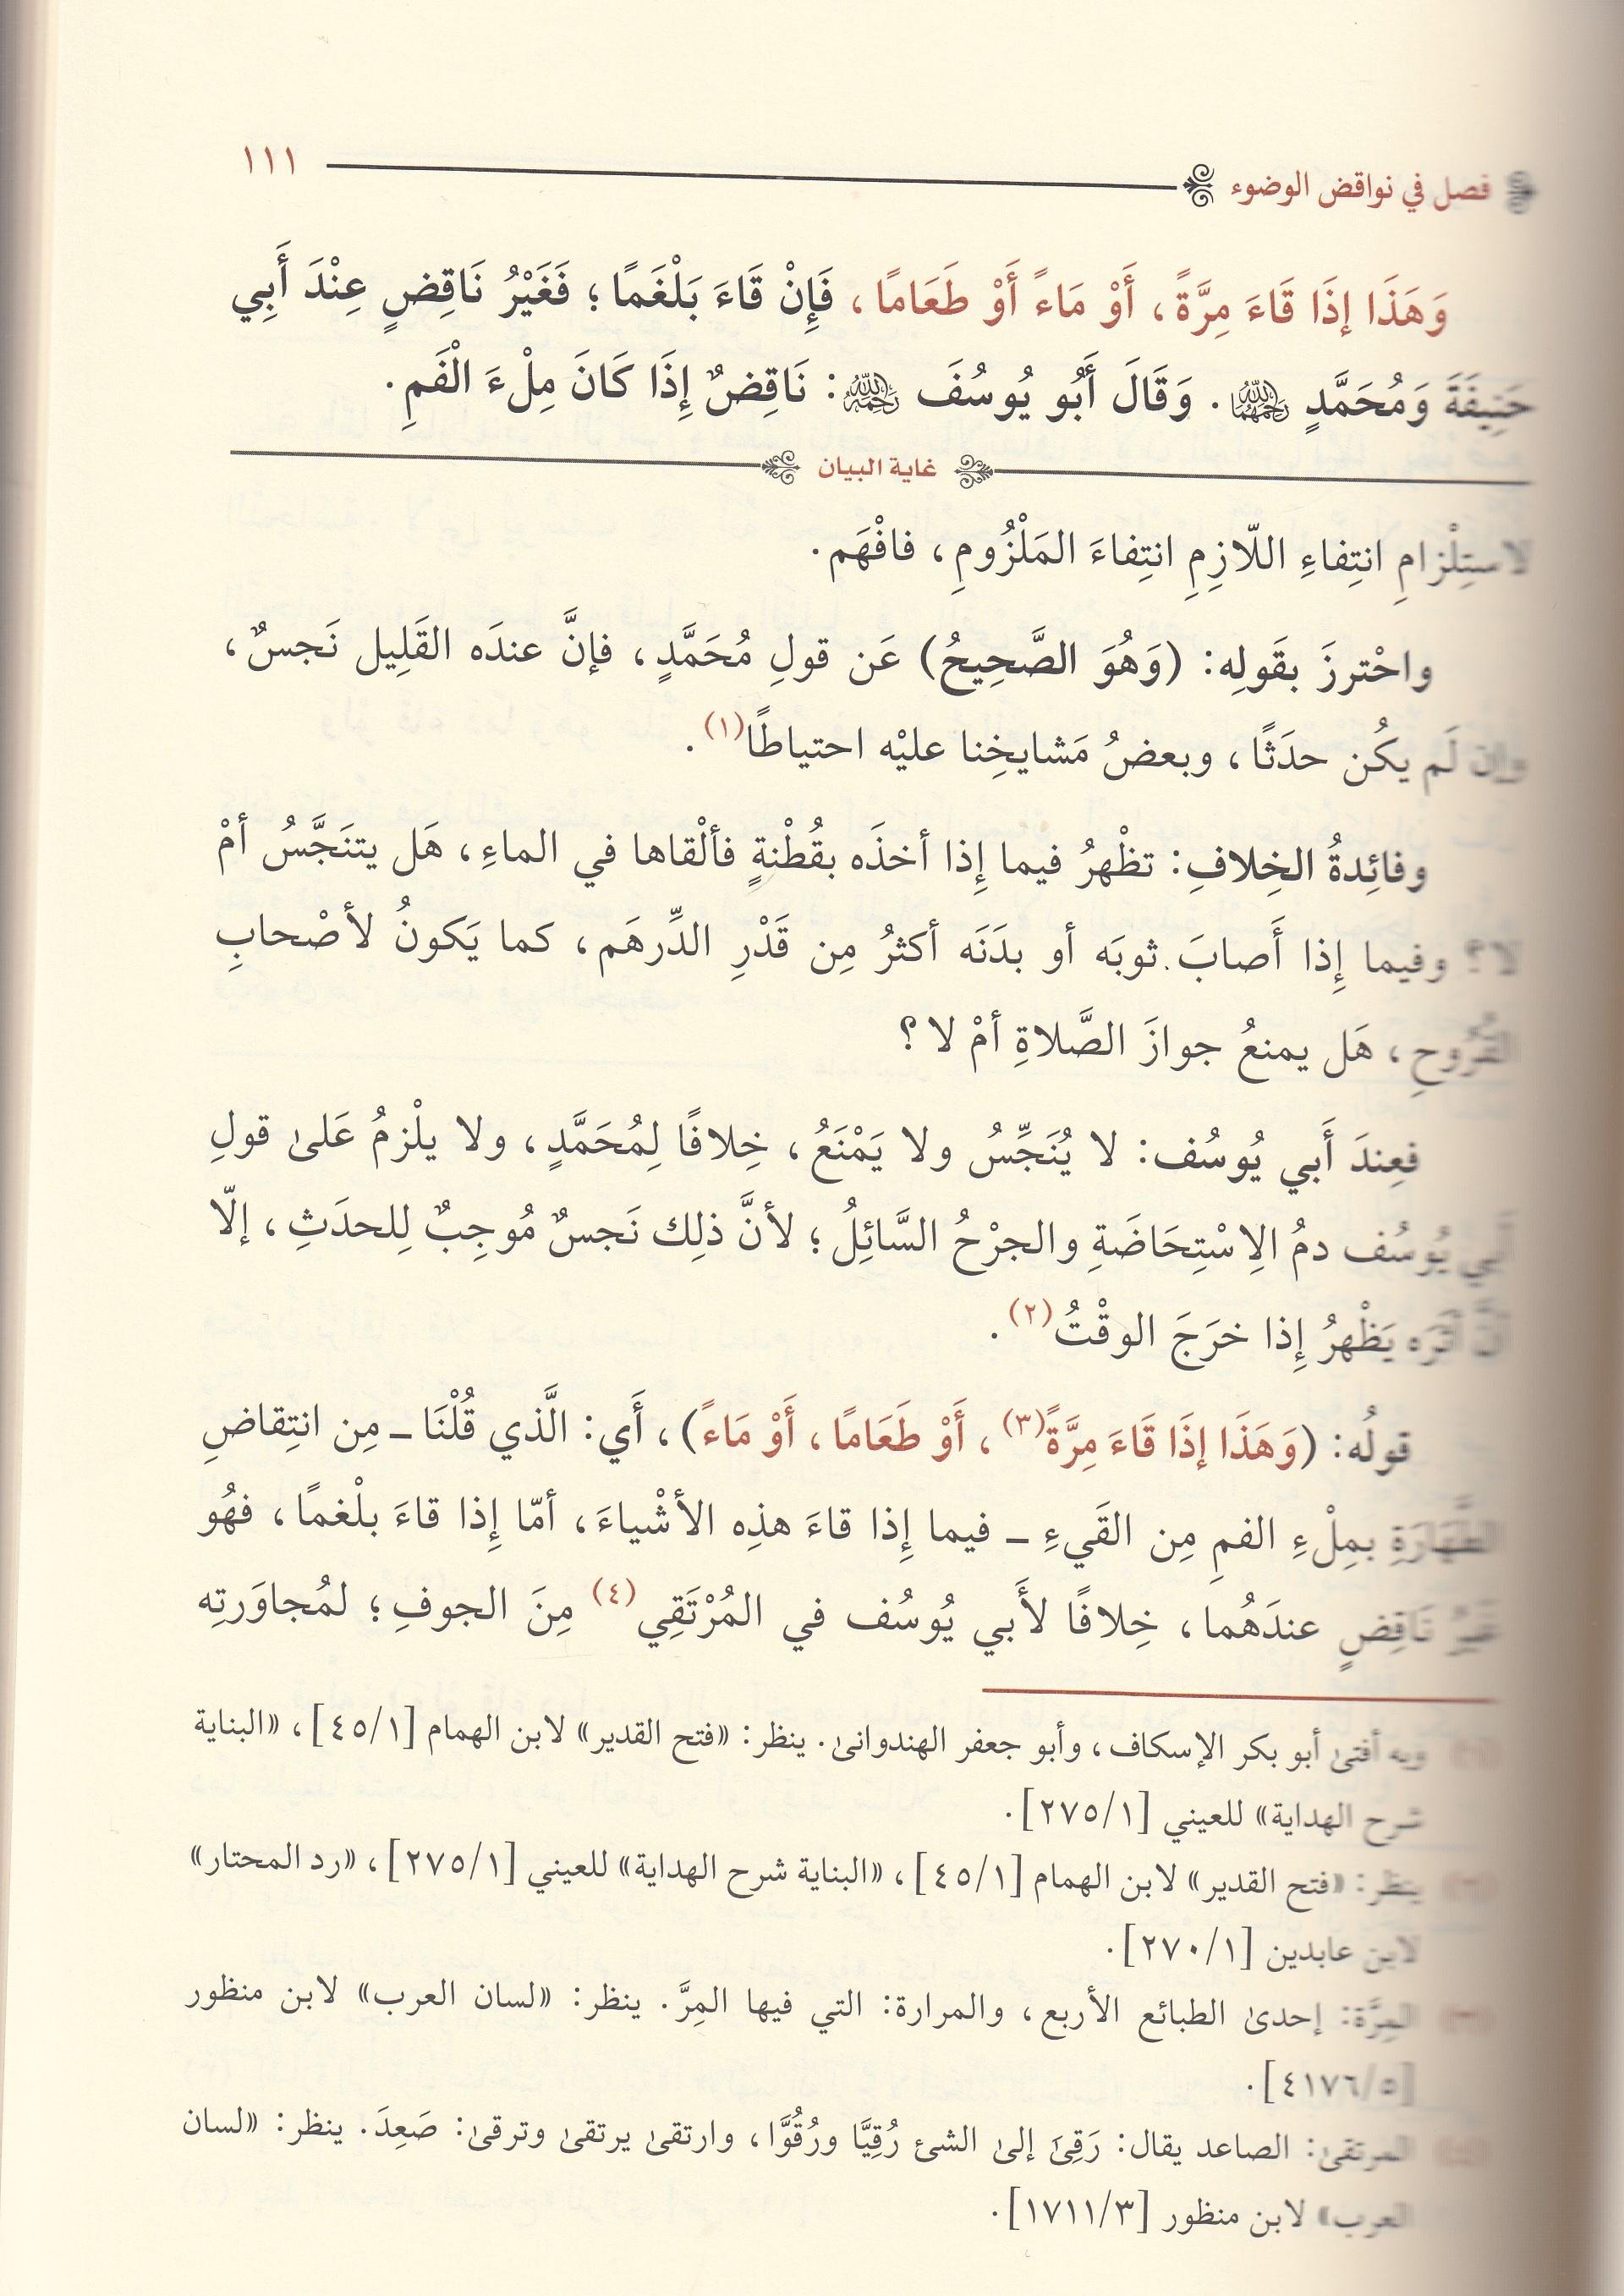 فصل في نواقض الوضوء ١١١
وَهَذَا إِذَا قَاءَ مِرَّةً، أَوْ مَاءً أَوْ طَعَامًا، فَإِنْ قَاءَ بَلْغَمًا؛ فَغَيْرُ نَاقِضٍ عِنْدَ أَبِي
حَنِيفَةَ وَمُحَمَّدٍ رحمهما الله. وَقَالَ أَبُو يُوسُفَ رحمه الله: نَاقِضٌ إِذَا كَانَ مِلْءَ الْفَمِ.
غاية البيان
لاستِلْزامِ انتِفاءِ اللّازِمِ انتِفاءَ المَلْزُومِ، فافْهَم.
واحْترزَ بقَولِه: (وَهُوَ الصَّحِيحُ) عَن قولِ مُحَمَّدٍ، فإنَّ عندَه القَلِيل نَجسٌ،
وإن لَم يكُن حدَثًا، وبعضُ مَشايخِنا عليْه احتياطًا(١).
وفائِدةُ الخِلافِ: تظْهرُ فيما إِذا أخذَه بقُطْنةٍ فألْقاها في الماءِ، هَل يتنَجَّسُ أمْ
لا؟ وفيما إِذا أَصابَ ثوبَه أو بدَنَه أكثرُ مِن قَدْرِ الدِّرهَم، كما يَكونُ لأصْحابِ
القُرُوحِ، هَل يمنعُ جوازَ الصَّلاةِ أمْ لا؟
فعِندَ أَبي يُوسُف: لا يُنَجِّسُ ولا يَمْنَعُ، خِلافًا لِمُحَمَّدٍ، ولا يلْزمُ عَلىٰ قولِ
أَبي يُوسُف دمُ الِاسْتِحَاضَةِ والجرْحُ السَّائِلُ؛ لأنَّ ذلِك نَجسٌ مُوجِبٌ لِلحدَثِ، إلّا
أنَّ أثَرَه يَظْهرُ إِذا خرَجَ الوقْتُ(٢).
قولُه: (وَهَذَا إِذَا قَاءَ مِرَّةً(٣)، أَوْ طَعَامًا، أَوْ مَاءً)، أَي: الَّذي قُلْنَا ـ مِن انتِقاضِ
الطَّهَارَةِ بمِلْءِ الفمِ مِن القَيءِ ـ فيما إِذا قاءَ هذِه الأشْياءَ، أمّا إِذا قاءَ بلْغمًا، فهُو
غَيرُ نَاقِضٍ عندَهُما، خِلافًا لأَبي يُوسُف في المُرْتَقِي(٤) مِنَ الجوفِ؛ لمُجاوَرتِه
(١) وبه أفتىٰ أبو بكر الإسكاف، وأبو جعفر الهندوانىٰ. ينظر: «فتح القدير» لابن الهمام [٤٥/١]، «البناية
شرح الهداية» للعيني [٢٧٥/١].
(٢) ينظر: «فتح القدير» لابن الهمام [٤٥/١]، «البناية شرح الهداية» للعيني [٢٧٥/١]، «رد المحتار»
لابن عابدين [٢٧٠/١].
(٣) المِرَّة: إحدىٰ الطبائع الأربع، والمرارة: التي فيها المِرَّ. ينظر: «لسان العرب» لابن منظور
[٤١٧٦/٥].
(٤) المرتقىٰ: الصاعد يقال: رَقِىَ إلىٰ الشئ رُقِيًّا ورُقُوًّا، وارتقىٰ يرتقىٰ وترقىٰ: صَعِدَ. ينظر: «لسان
العرب» لابن منظور [١٧١١/٣].